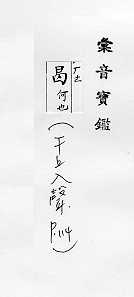 彙音寶鑑
曷 何也
(干上入聲. P.114)